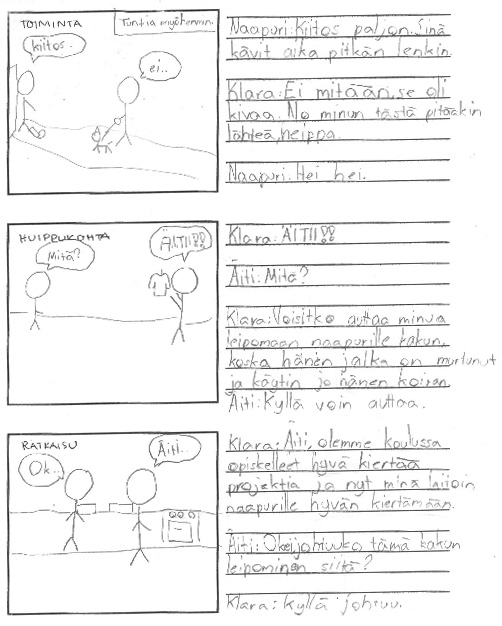 TOIMINTA
Tuntia myöhemmin.
kiitos..
ei..
Naapuri: Kiitos paljon. Sinä
kävit aika pitkän lenkin.
Klara: Ei mitään, se oli
kivaa. No minun tästä pitääkin
lähteä, heippa.
Naapuri: Hei hei.
HUIPPUKOHTA
Mitä?
ÄITII!!
Klara: ÄITII!!
Äiti: Mitä?
Klara: Voisitko auttaa minua
leipomaan naapurille kakun,
koska hänen jalka on murtunut
ja käytin jo hänen koiran.
Äiti: Kyllä voin auttaa.
RATKAISU
Ok..
Äiti..
Klara: Äiti, olemme koulussa
opiskelleet hyvä kiertää
projektia ja nyt minä laitoin
naapurille hyvän kiertämään.
Äiti: Okei johtuuko tämä kakun
leipominen siitä?
Klara: kyllä johtuu.